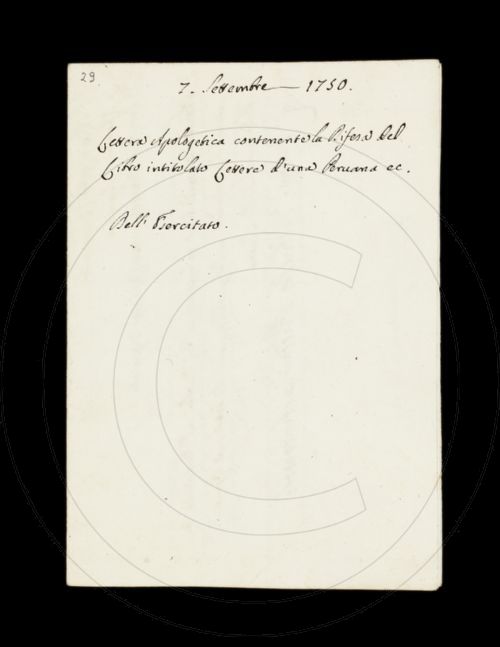 29
7. Settembre — 1750.
Lettera Apologetica contenente la Difesa del
Libro intitolato Lettere d'una Peruana ec.
Dell' Esercitato.